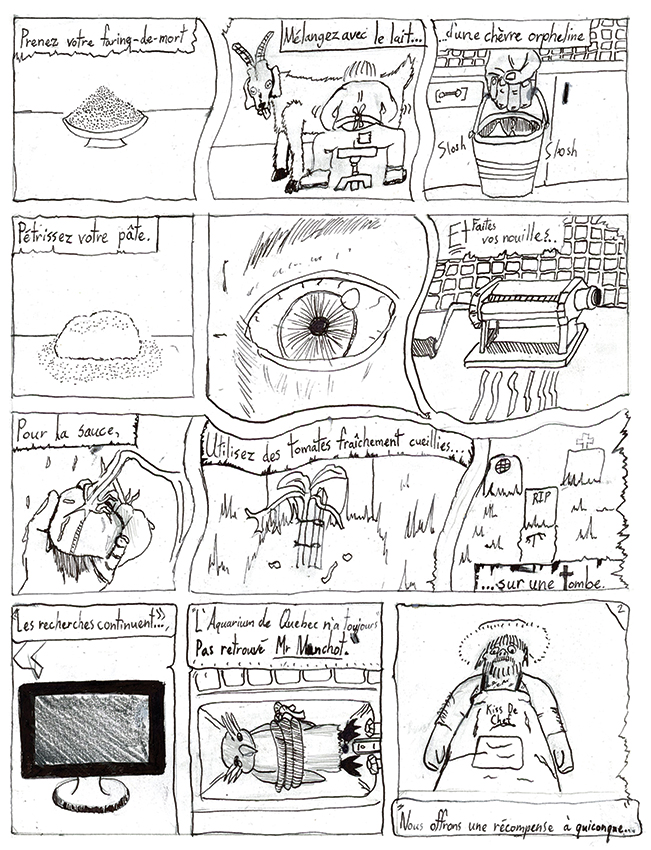 Prenez votre farine-de-mort
Mélangez avec le lait...
...d'une chèvre orpheline
Slosh
Slosh
Pétrissez votre pâte.
Et Faites
vos nouilles..
Pour la sauce,
Utilisez des tomates fraîchement cueillies...
RIP
...sur une tombe.
"Les recherches continuent...,
"L'Aquarium de Quebec n'a toujours
Pas retrouvé Mr Manchot.
2
Kiss De
Chef
"Nous offrons une récompense à quiconque...